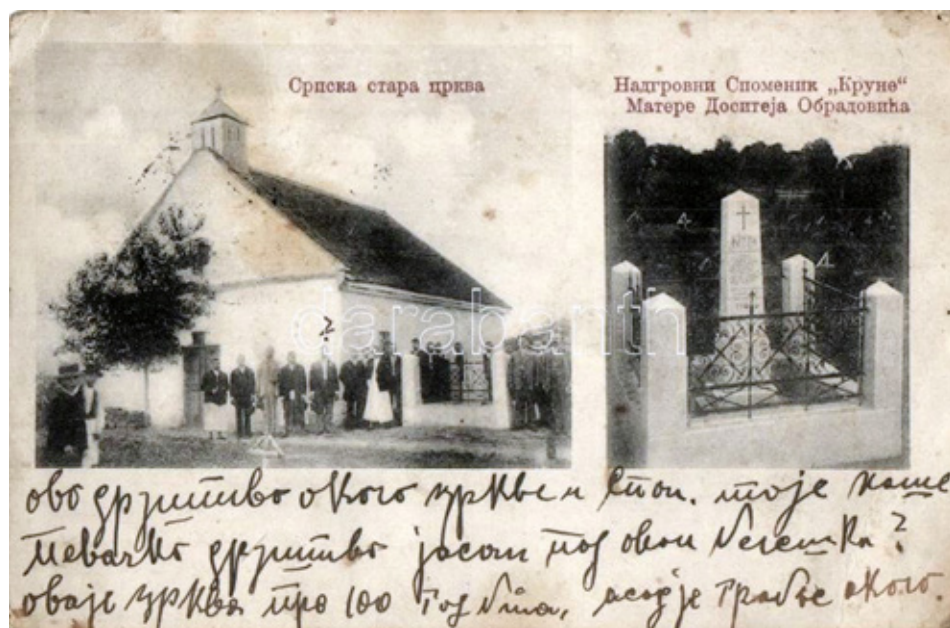 Српска стара црква
Надгровни Споменик „Круне“
Матере Доситеја Обрадовића
darabanth
?
ово друштво окого цркве и стои. тоје наше
певачко друштво јасам под овои белешка?
оваје црква пре 100 година, асадје гробље окого.